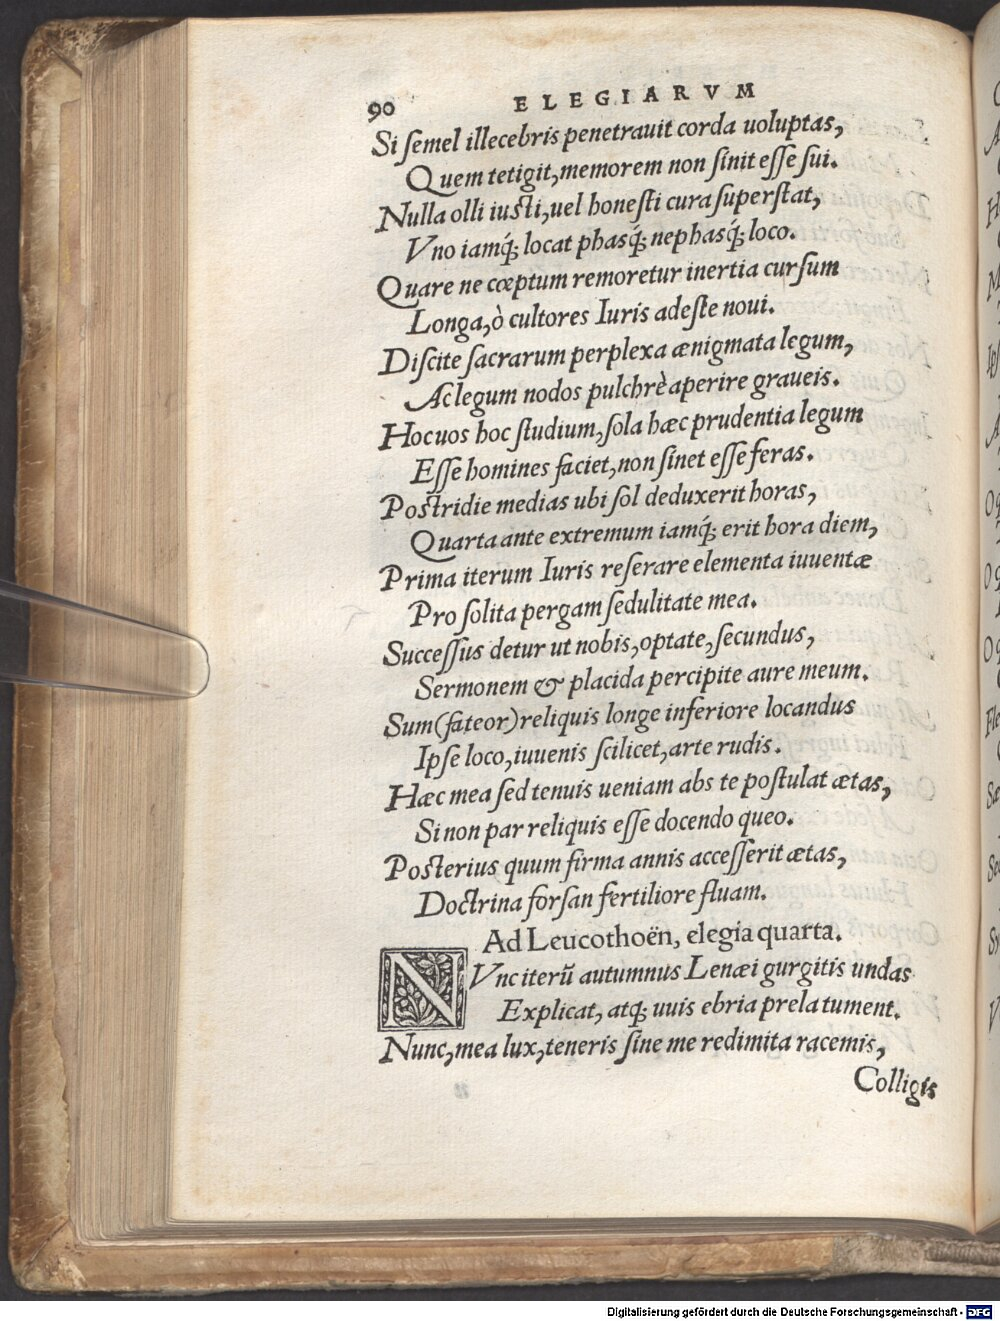 90 ELEGIARVM
Si semel illecebris penetrauit corda uoluptas,
Quem tetigit, memorem non sinit esse sui.
Nulla olli iusti, uel honesti cura superstat,
Vno iamq́; locat phasq́; nephasq́; loco.
Quare ne cœptum remoretur inertia cursum
Longa, ò cultores Iuris adeste noui.
Discite sacrarum perplexa ænigmata legum,
Ac legum nodos pulchrè aperire graueis.
Hoc uos hoc studium, sola hæc prudentia legum
Esse homines faciet, non sinet esse feras.
Postridie medias ubi sol deduxerit horas,
Quarta ante extremum iamq́; erit hora diem,
Prima iterum Iuris reserare elementa iuuentæ
Pro solita pergam sedulitate mea.
Successus detur ut nobis, optate, secundus,
Sermonem & placida percipite aure meum.
Sum (fateor) reliquis longe inferiore locandus
Ipse loco, iuuenis scilicet, arte rudis.
Hæc mea sed tenuis ueniam abs te postulat ætas,
Si non par reliquis esse docendo queo.
Posterius quum firma annis accesserit ætas,
Doctrina forsan fertiliore fluam.
Ad Leucothoën, elegia quarta.
NVnc iterũ autumnus Lenæi gurgitis undas
Explicat, atq; uuis ebria prela tument.
Nunc, mea lux, teneris sine me redimita racemis,
Colligis
Digitalisierung gefördert durch die Deutsche Forschungsgemeinschaft - DFG